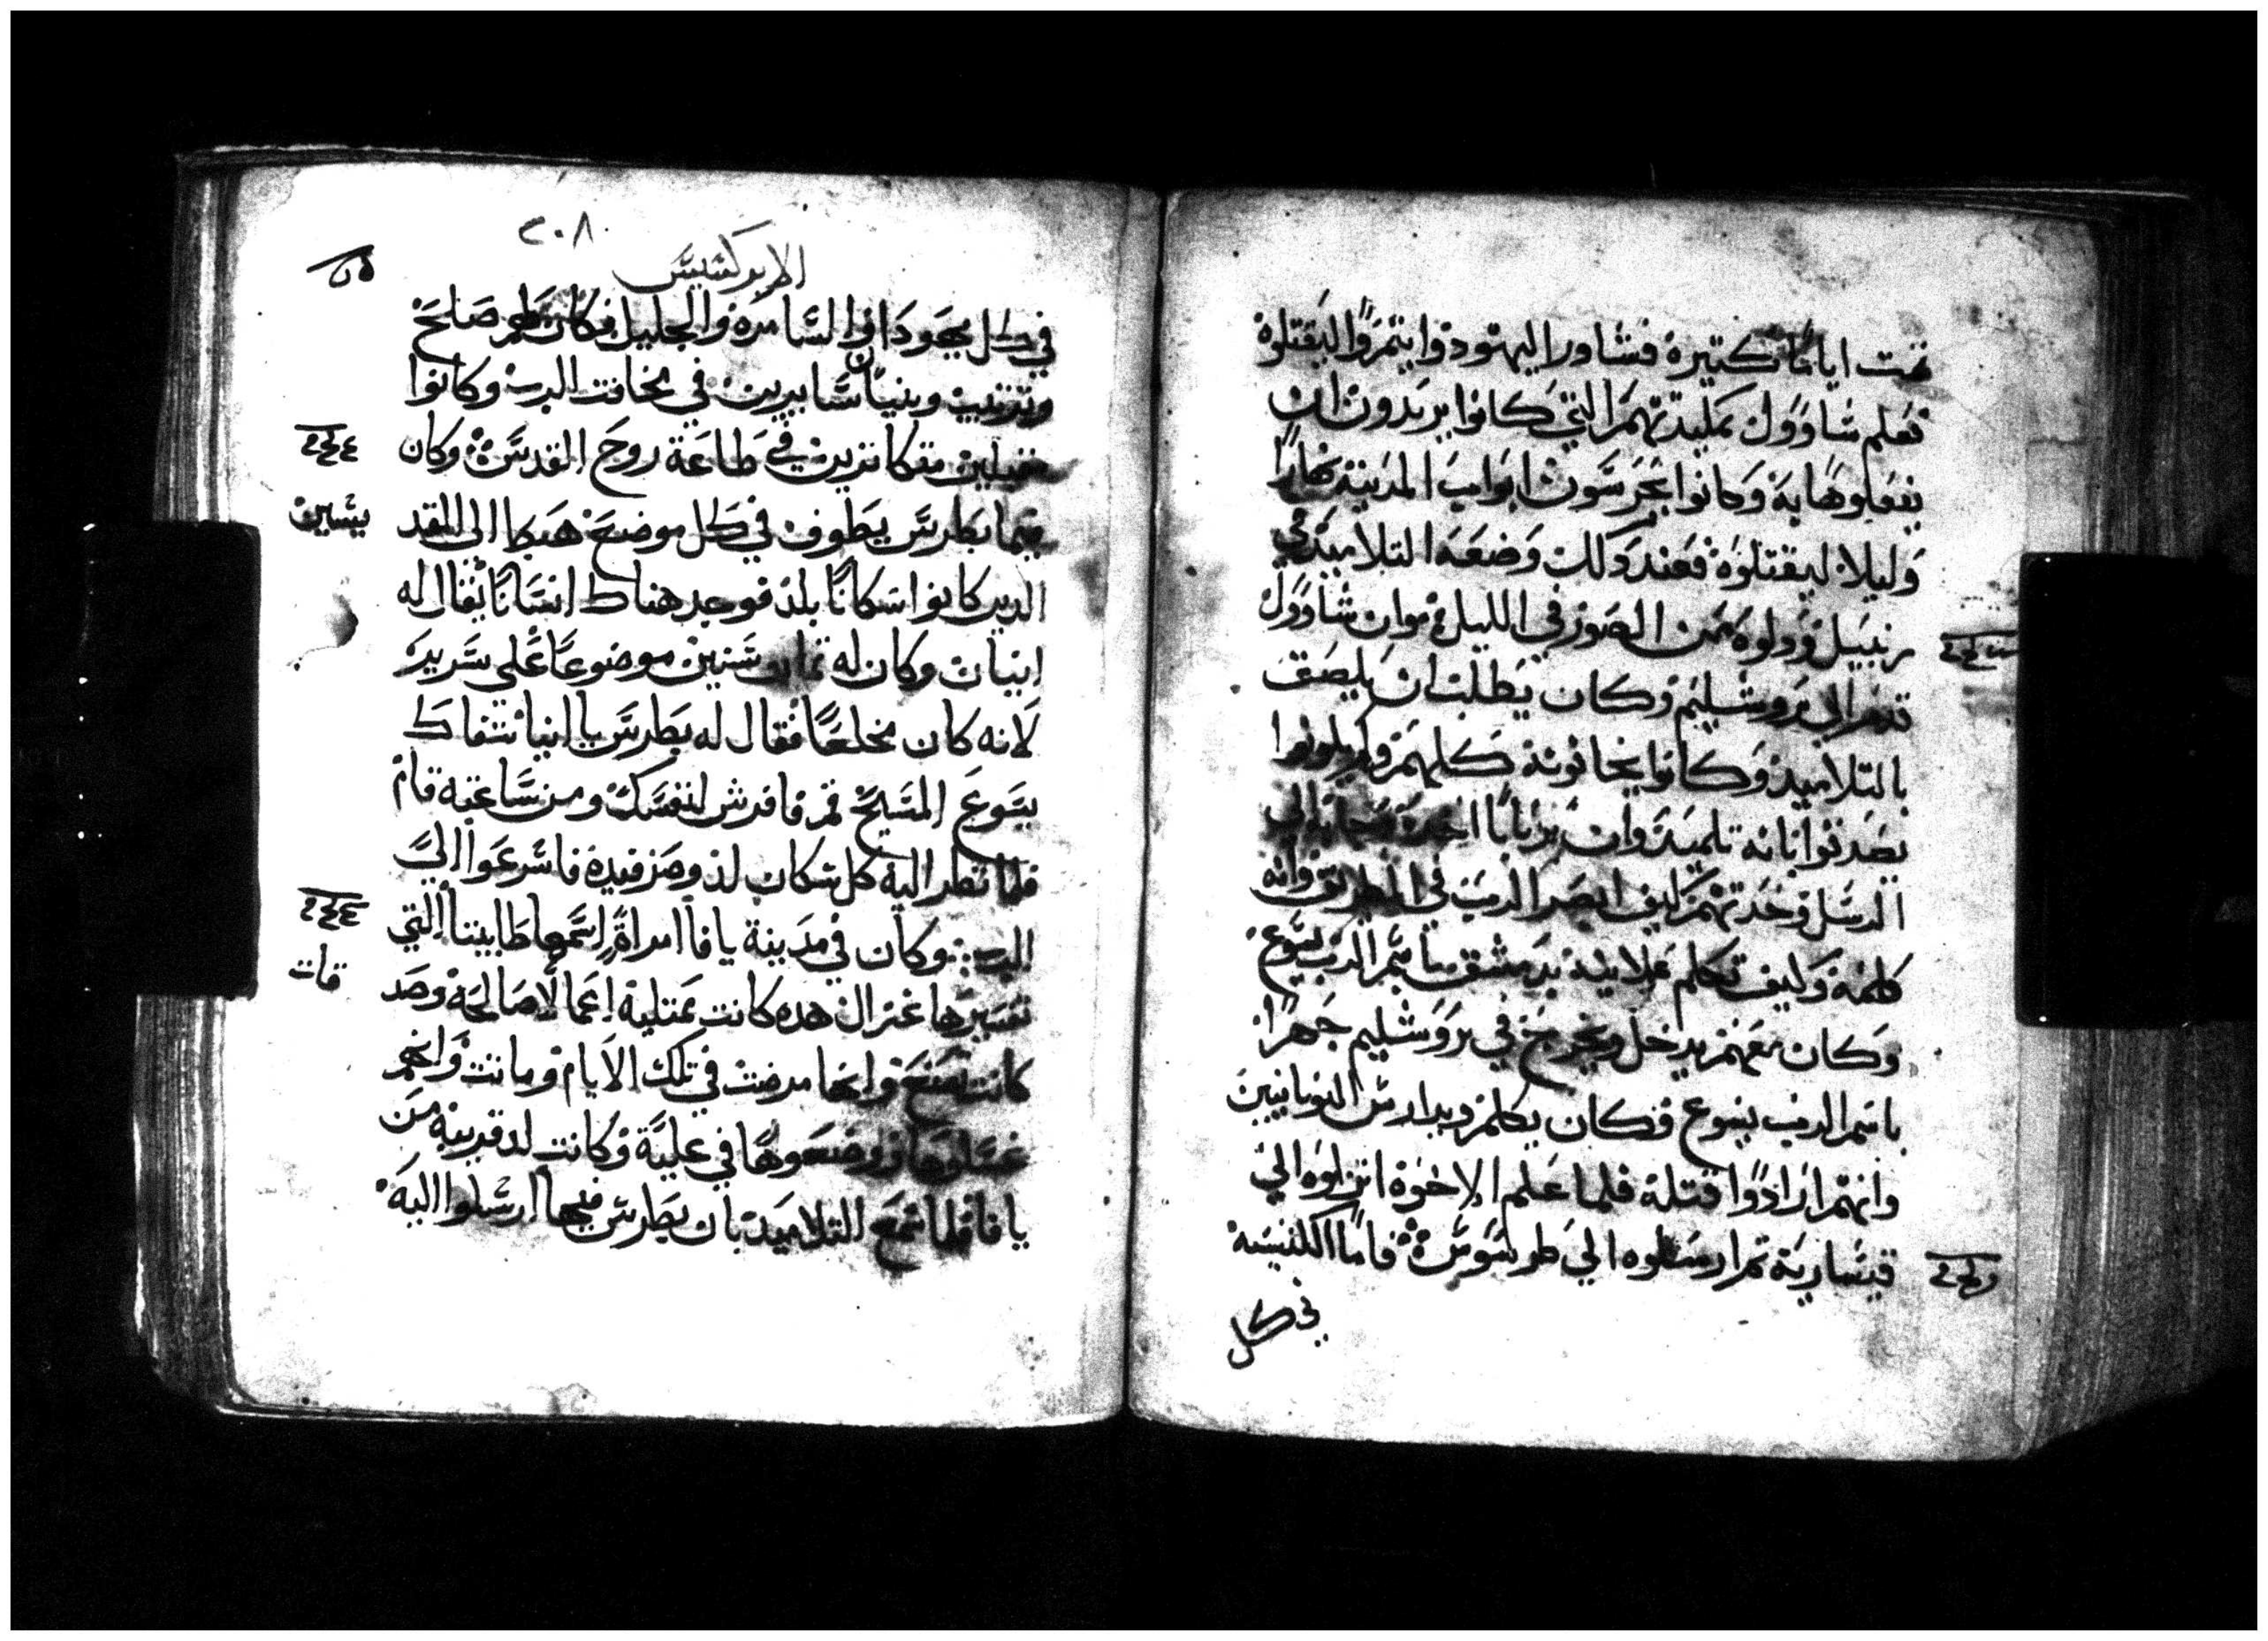 تمت اياما كتيرة فشاور اليهود وايتمروا ليقتلوه
فعلم شاوول بمكيدتهم التي كانوا يريدون ان
يفعلوها به وكانوا يحرسون ابواب المدينة نهارا
وليلا ليقتلوه فعند دلك وضعه التلاميد في
زنبيل ودلوه من الصور في الليل وان شاوول
قدم الي يروشليم وكان يطلب ان يلصق
بالتلاميد وكانوا يخافونه كلهم ولم يكونوا
يصدقوا بانه تلميد وان برنابا اخده وجابه الي
الرسل وحدتهم كيف ابصر الرب في الطريق وانه
كلمه وكيف تكلم علانية بدمشق باسم الرب يسوع
وكان معهم يدخل ويخرج في يروشليم جهرا
باسم الرب يسوع فكان يكلم ويدارس اليونانيين
وانهم ارادوا قتله فلما علم الاخوة انزلوه الي
قيسارية تم ارسلوه الي طرسوس فاما الكنيسه
في كل
٢٠٨
الابركسيس
في كل يهودا والسامره والجليل فكان لهم صلح
وترتيب وبنيان سايرين في مخافت الرب وكانوا
متكاترين في طاعة روح القدس وكان
بينما بطرس يطوف في كل موضع هبط الي القد
يسين
الدين كانوا سكانا بلد فوجد هناك انسانا يقال له
اينيات وكان له تمان سنين موضوعا علي سرير
لانه كان مخلعا فقال له بطرس يا اينيا شفاك
يسوع المسيح قم فافرش لنفسك ومن ساعته قام
فلما نظر اليه كل سكان لد وصرفيده فاسرعوا الي
الرب وكان في مدينة يافا امراة اسمها طابيتا التي
تفسيرها غزال هده كانت ممتلية اعمالا صالحة وصد
قات
كانت تصنع وانها مرضت في تلك الايام وماتت وانهم
غسلوها ووضعوها في علية وكانت لد قريبة من
يافا فلما سمع التلاميد بان بطرس فيها ارسلوا اليه